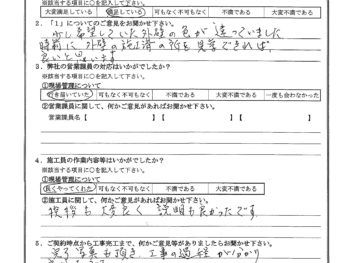 ※該当する項目に○を記入して下さい。
大変満足している 満足している 可もなく不可もなく 不満である 大変不満である
2．「1」についてのご意見をお聞かせ下さい。
少し希望していた外壁の色が違っていました
時前に外壁の施工済の所を見学できれば
良いと思います
3．弊社の営業課員の対応はいかがでしたか？
※該当する項目に○を記入して下さい。
①現場管理について
行き届いていた 可もなく不可もなく 不満である 大変不満である 一度も会わなかった
②営業課員に関して、何かご意見があればお聞かせ下さい。
営業課員名【 】【 】【 】
4．施工員の作業内容等はいかがでしたか？
※該当する項目に○を記入して下さい。
①現場管理について
良くやってくれた 可もなく不可もなく 不満である 大変不満である
②施工員に関して、何かご意見があればお聞かせ下さい。
挨拶も大変良く 説明も良かったです。
5．ご契約時点から工事完工まで、何かご意見等がありましたらお聞かせ下さい。
完了写真も頂き、工事の過程がわかり